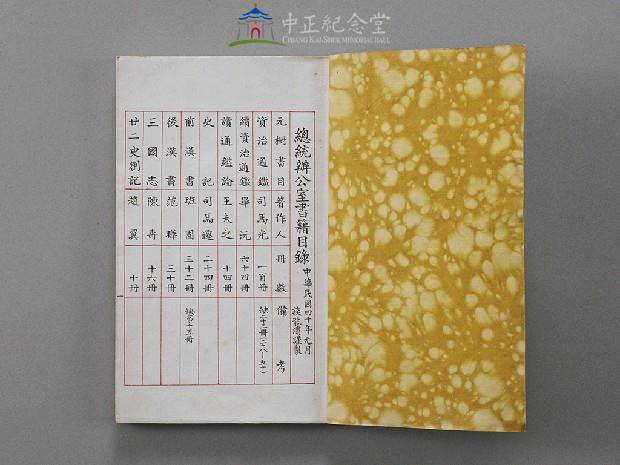 中正紀念堂
CHIANG KAI-SHEK MEMORIAL HALL
總統辦公室書籍目錄
中華民國四十年元月
元櫥書目 著作人 冊數 備考
資治通鑑 司馬光 一百冊
續資治通鑑 畢沅 六十四冊
讀通鑑論 王夫之 十四冊
史記 司馬遷 二十四冊
前漢書 班固 三十二冊 缺第十五冊
後漢書 范曄 三十冊
三國志 陳壽 十六冊
廿二史劄記 趙翼 十冊